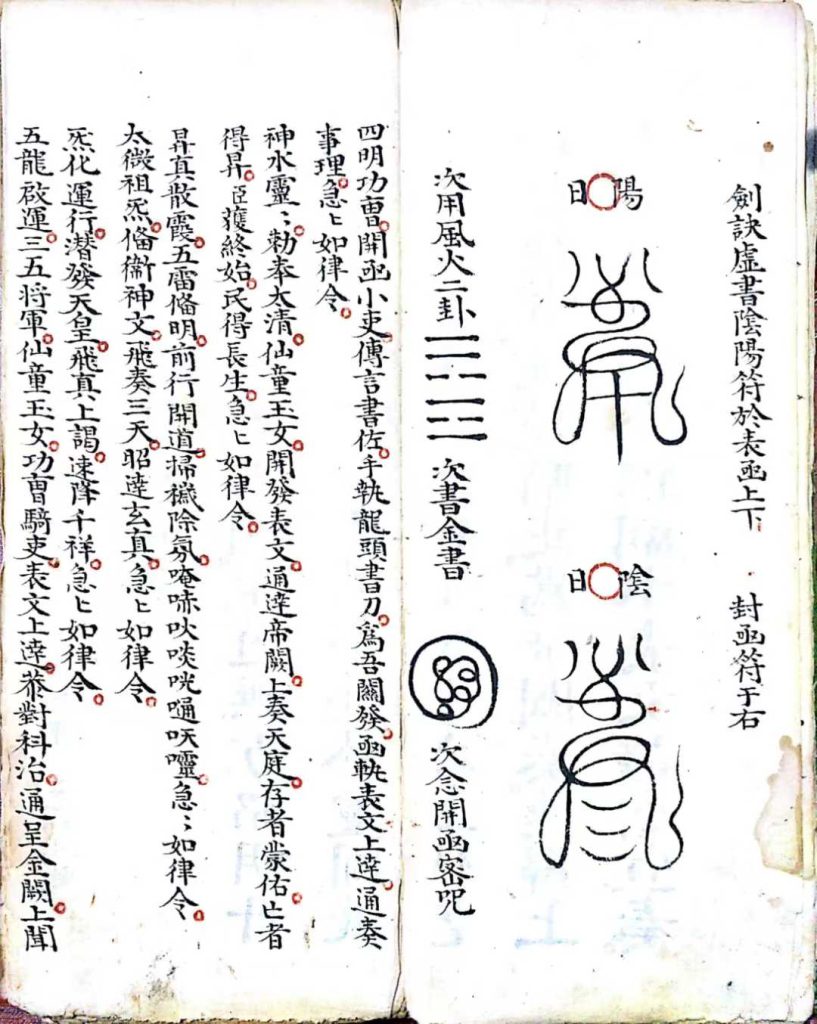 劍訣虛書陰陽符於表函上下　封函符于右
陽〇日
陰〇日
次用風火二卦　次書金書　次念開函密咒
四明功曹。開函小吏。傳言書佐。手執龍頭書刀。爲吾關發。函執表文上達。通奏
事理。急〻如律令。
神水靈〻。勅奉太清。仙童玉女。開發表文。通達帝闕。上奏天庭。存者蒙佑。亡者
得昇。臣獲終始。民得長生。急〻如律令。
昇真散霞。五雷俻明。前行開道。掃穢除氛。唵㖿吙啖咣嗵㕭𡅖。急〻如律令。
太微祖炁。俻衛神文。飛奏三天。昭達玄真。急〻如律令。
炁化運行。潜發天皇。飛真上謁。速降千祥。急〻如律令。
五龍啟運。三五将軍。仙童玉女。功曹騎吏。表文上達。恭對科治。通呈金闕。上聞